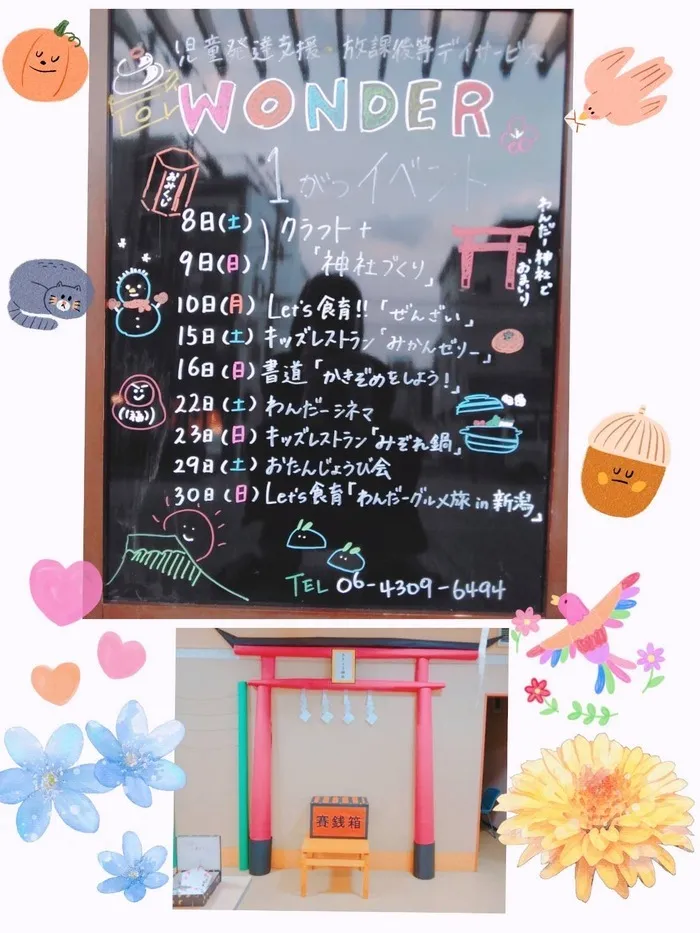 児童発達支援・放課後等デイサービス
WONDER
1がつイベント
おみくじ
8日(土)
9日(日)
クラフト+
「神社づくり」
わんだー神社で
おまいり
10日(月) Let's食育!!「ぜんざい」
15日(土) キッズレストラン「みかんゼリー」
16日(日) 書道「かきぞめをしよう!」
22日(土) わんだーシネマ
23日(日) キッズレストラン「みぞれ鍋」
29日(土) おたんじょうび会
30日(日) Let's食育「わんだーグルメ旅in新潟」
福
TEL 06-4309-6494
賽銭箱